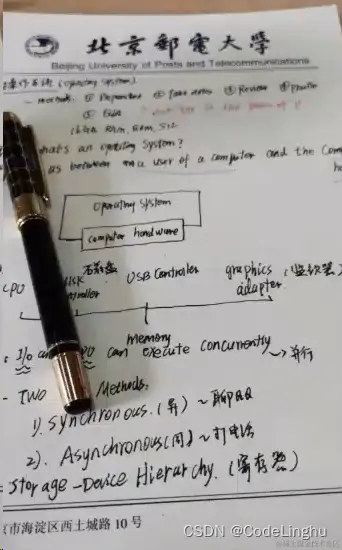 北京邮电大学
Beijing University of Posts and Telecommunications
操作系统 (operating system)
② take notes ③ Review ④ Practice
what's an operating system?
as between a user of a computer and the Com
operating system
computer hardware
CPU
USB controller
graphics adapter (监视器)
memory
I/o can execute concurrently → 并行
- Two Methods.
1). Synchronous. (异) ~ 聊QQ
2). Asynchronous (同) ~ 打电话
Storage-Device Hierarchy. (寄存器)
市海淀区西土城路 10 号
CSDN @CodeLinghu